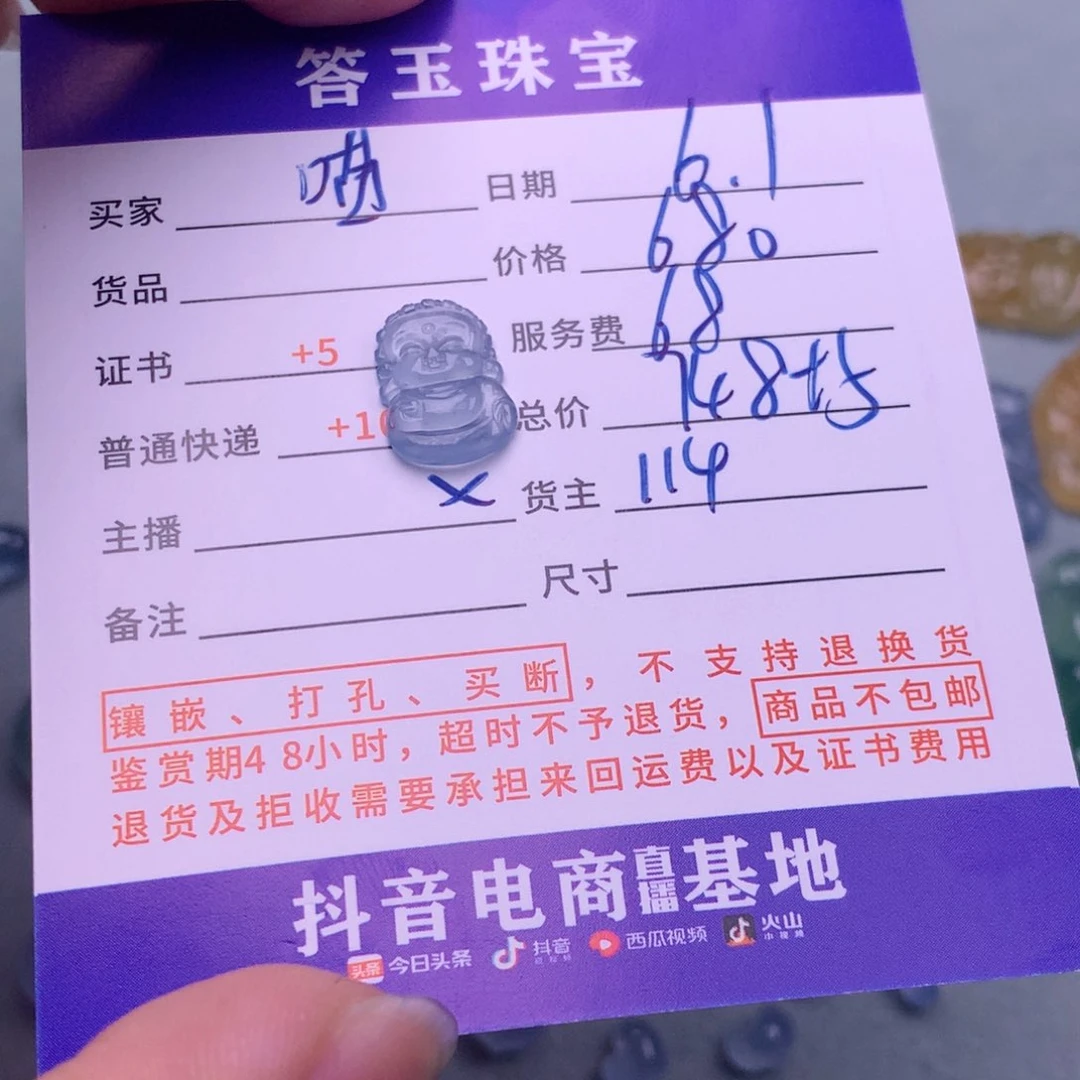 答玉珠宝
买家 日期 6.1
货品 价格 680
证书 +5 服务费 68
普通快递 +10 总价 748+5
主播 X 货主 114
备注 尺寸
镶嵌、打孔、买断，不支持退换货
鉴赏期48小时，超时不予退货，商品不包邮
退货及拒收需要承担来回运费以及证书费用
抖音电商直播基地
头条 今日头条 抖音 西瓜视频 火山
小视频